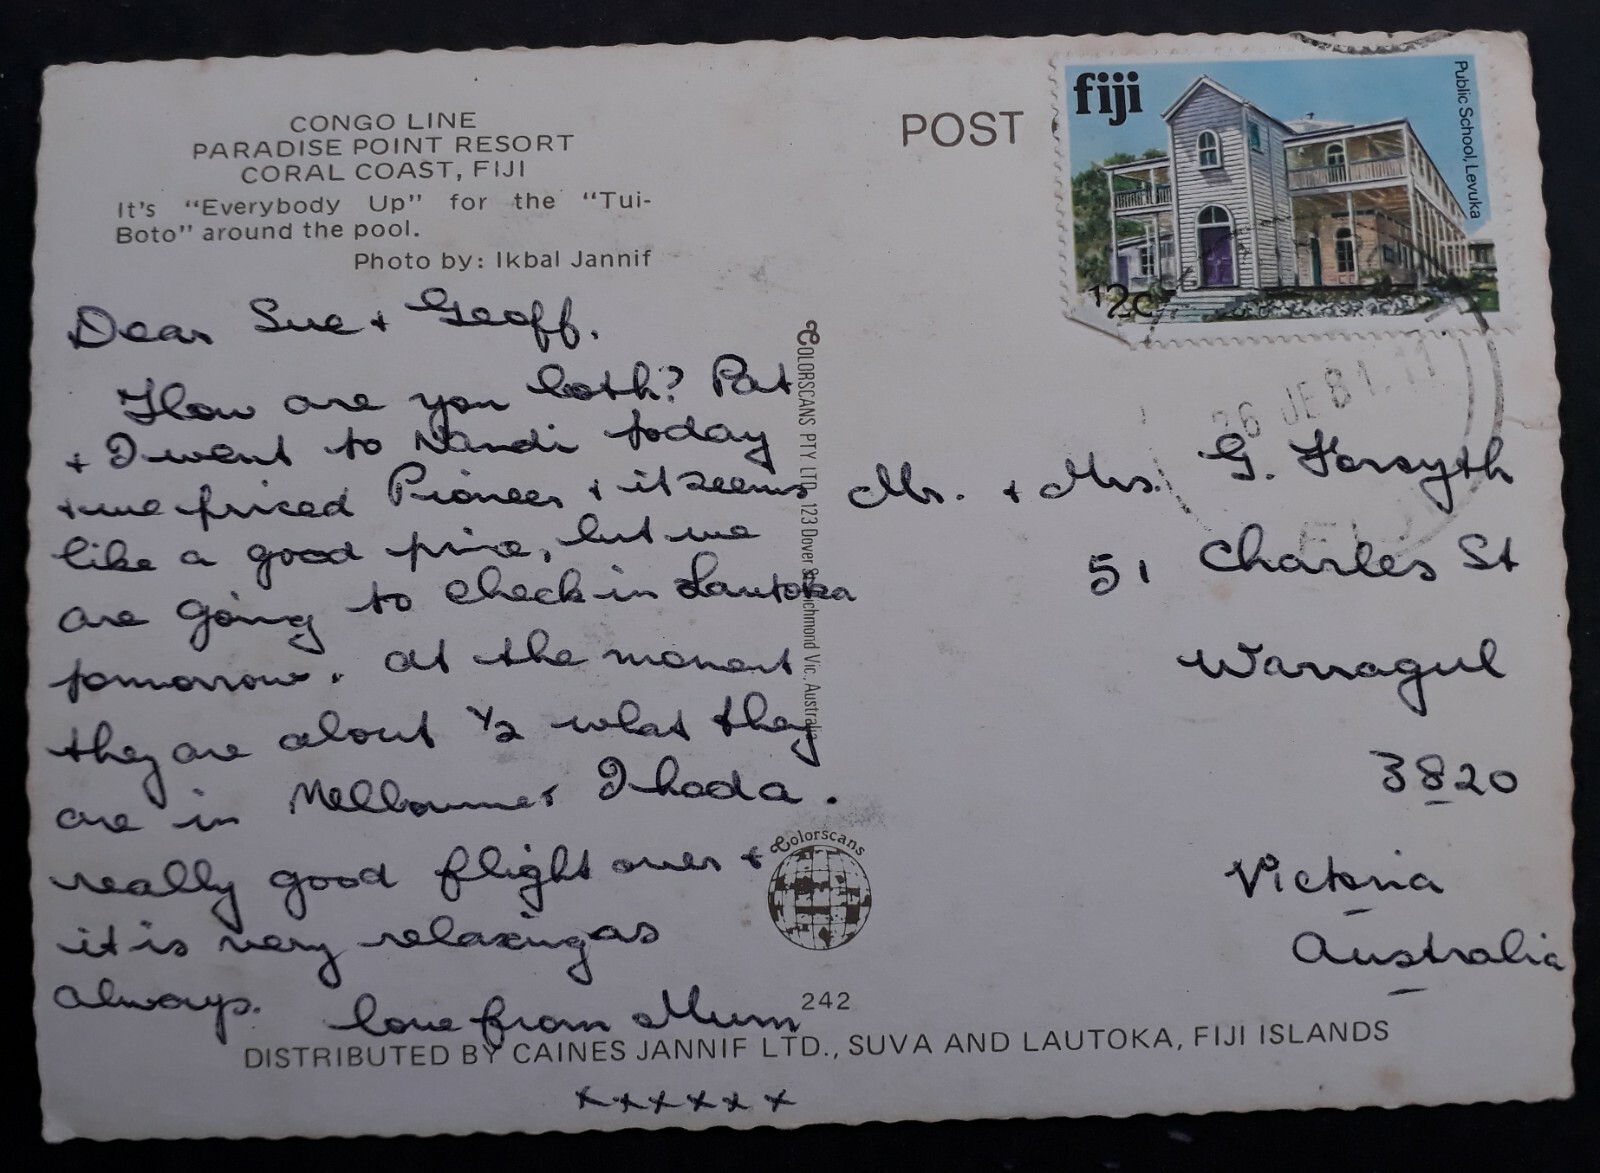 CONGO LINE
PARADISE POINT RESORT
CORAL COAST, FIJI
It's "Everybody Up" for the "Tui-
Boto" around the pool.
Photo by: Ikbal Jannif
Dear Sue + Geoff.
How are you both? Pat
+ I went to Nandi today
+ we priced Pioneer + it seems
like a good price, but we
are going to check in Lautoka
tomorrow. At the moment
they are about 1/2 what they
are in Melbourne. I had a
really good flight over +
it is very relaxing as
always.
love from Mum
xxxxxx
COLORSCANS PTY LTD. 123 Dover St Richmond Vic., Australia
Colorscans
242
DISTRIBUTED BY CAINES JANNIF LTD., SUVA AND LAUTOKA, FIJI ISLANDS
POST
fiji
Public School, Levuka
12c
26 JE 81.11
FIJI
Mr. + Mrs. G. Forsyth
51 Charles St
Warragul
3820
Victoria
Australia